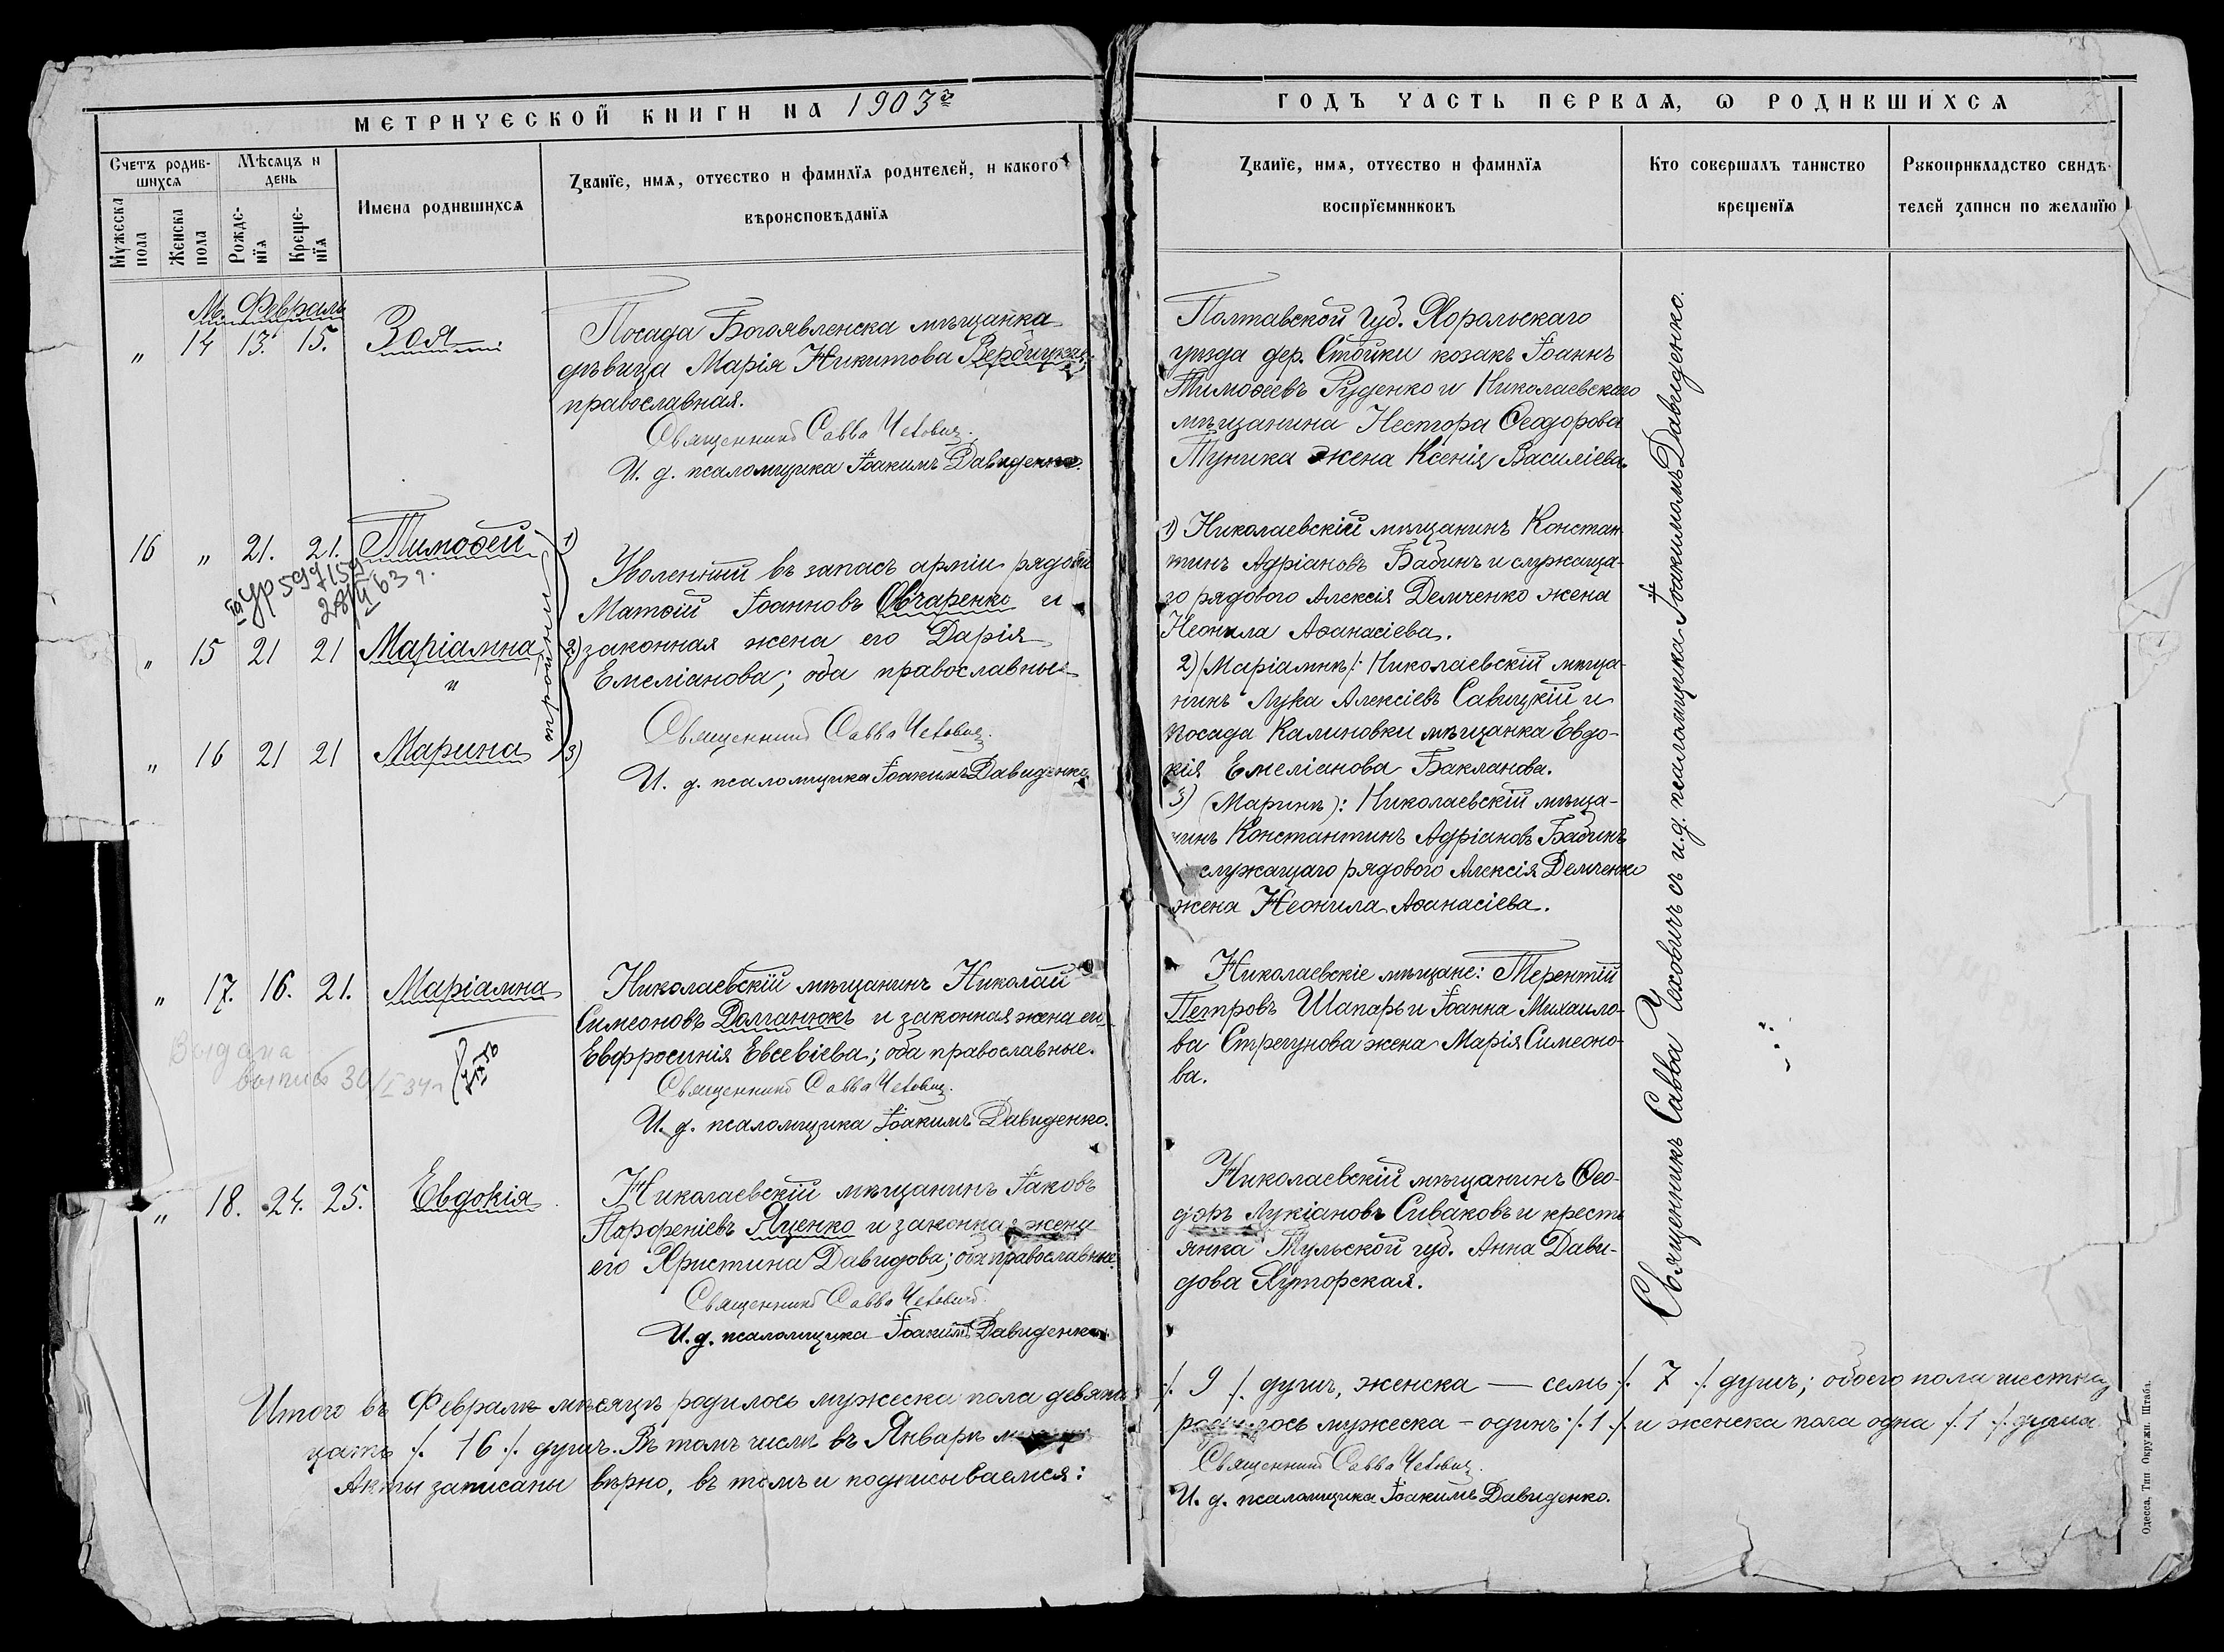 МЕТРИЧЕСКОЙ КНИГИ НА 1903 г
Счетъ родив-
шихся
Мѣсяцъ и
день
Мужеска
пола
Женска
пола
Рожде-
нїя
Креще-
нїя
Имена родившихся
Званїе, имя, отчество и фамилїя родителей, и какого
вѣроисповѣданїя
М. Февраль
„ 14 13. 15. Зоя
Посада Богоявленска мѣщанка
дѣвица Марія Никитова Вербицкая,
православная.
Священникъ Савва Чехович.
И. д. псаломщика Іоакимъ Давиденко.
16 „ 21. 21. Тимоѳей
„ 15 21 21 Маріамна
и
„ 16 21 21 Марина
тройни
1)
2)
3)
Уволенный въ запасъ арміи рядовой
Матѳій Іоанновъ Овчаренко и
законная жена его Дарія
Емеліанова; оба православные
Священникъ Савва Чехович.
И. д. псаломщика Іоакимъ Давиденко
„ 17. 16. 21. Маріамна
Выдана
выпись 30/I 34 г
Николаевскій мѣщанинъ Николай
Симеоновъ Долганюкъ и законная жена его
Евфросинія Евсевіева; оба православные.
Священникъ Савва Чехович.
И. д. псаломщика Іоакимъ Давиденко.
„ 18. 24. 25. Евдокія
Николаевскій мѣщанинъ Іаковъ
Парфеніевъ Яценко и законная жена
его Христина Давидова; оба православные.
Священникъ Савва Чеховичъ
И. д. псаломщика Іоакимъ Давиденко
Итого въ Февралѣ мѣсяцѣ родилось мужеска пола девять
цать /. 16 /. душъ. Въ томъ числѣ въ Январѣ
Акты записаны вѣрно, въ томъ и подписываемся:
ГОДЪ ЧАСТЬ ПЕРВАЯ, Ѡ РОДИВШИХСЯ
Званїе, имя, отчество и фамилїя
воспрїемниковъ
Кто совершалъ таинство
крещенїя
Рукоприкладство свидѣ-
телей записи по желанїю
Полтавской губ. Хорольскаго
уѣзда дер. Стойки козакъ Іоаннъ
Тимоѳеевъ Руденко и Николаевскаго
мѣщанина Нестора Ѳеодорова
Туника жена Ксенія Василіева.
1) Николаевскій мѣщанинъ Констан-
тинъ Адріановъ Бабинъ и служаща-
го рядового Алексія Демченко жена
Неонила Аѳанасіева.
2) (Маріамнѣ): Николаевскій мѣща-
нинъ Лука Алексіевъ Савицкій и
посада Калиновки мѣщанка Евдо-
кія Емеліанова Бакланова.
3) (Маринѣ): Николаевскій мѣща-
нинъ Константинъ Адріановъ Бабинъ
служащаго рядового Алексія Демченко
жена Неонила Аѳанасіева.
Николаевскіе мѣщане: Терентій
Петровъ Шапарь и Іоанна Михаило-
ва Стрегунова жена Марія Симеоно-
ва.
Николаевскій мѣщанинъ Ѳео-
доръ Лукіановъ Сиваковъ и кресть
янка Тульской губ. Анна Дави-
дова Хуторская.
Священникъ Савва Чеховичъ съ и.д. псаломщика Іоакимомъ Давиденко.
/. 9 /. душъ, женска — семь /. 7 /. душъ; обоего пола шестнад
родилось мужеска – одинъ /. 1 /. и женска пола одна /. 1 /. душа
Священникъ Савва Чехович.
И. д. псаломщика Іоакимъ Давиденко.
Одесса, Тип Окружн. Штаба.